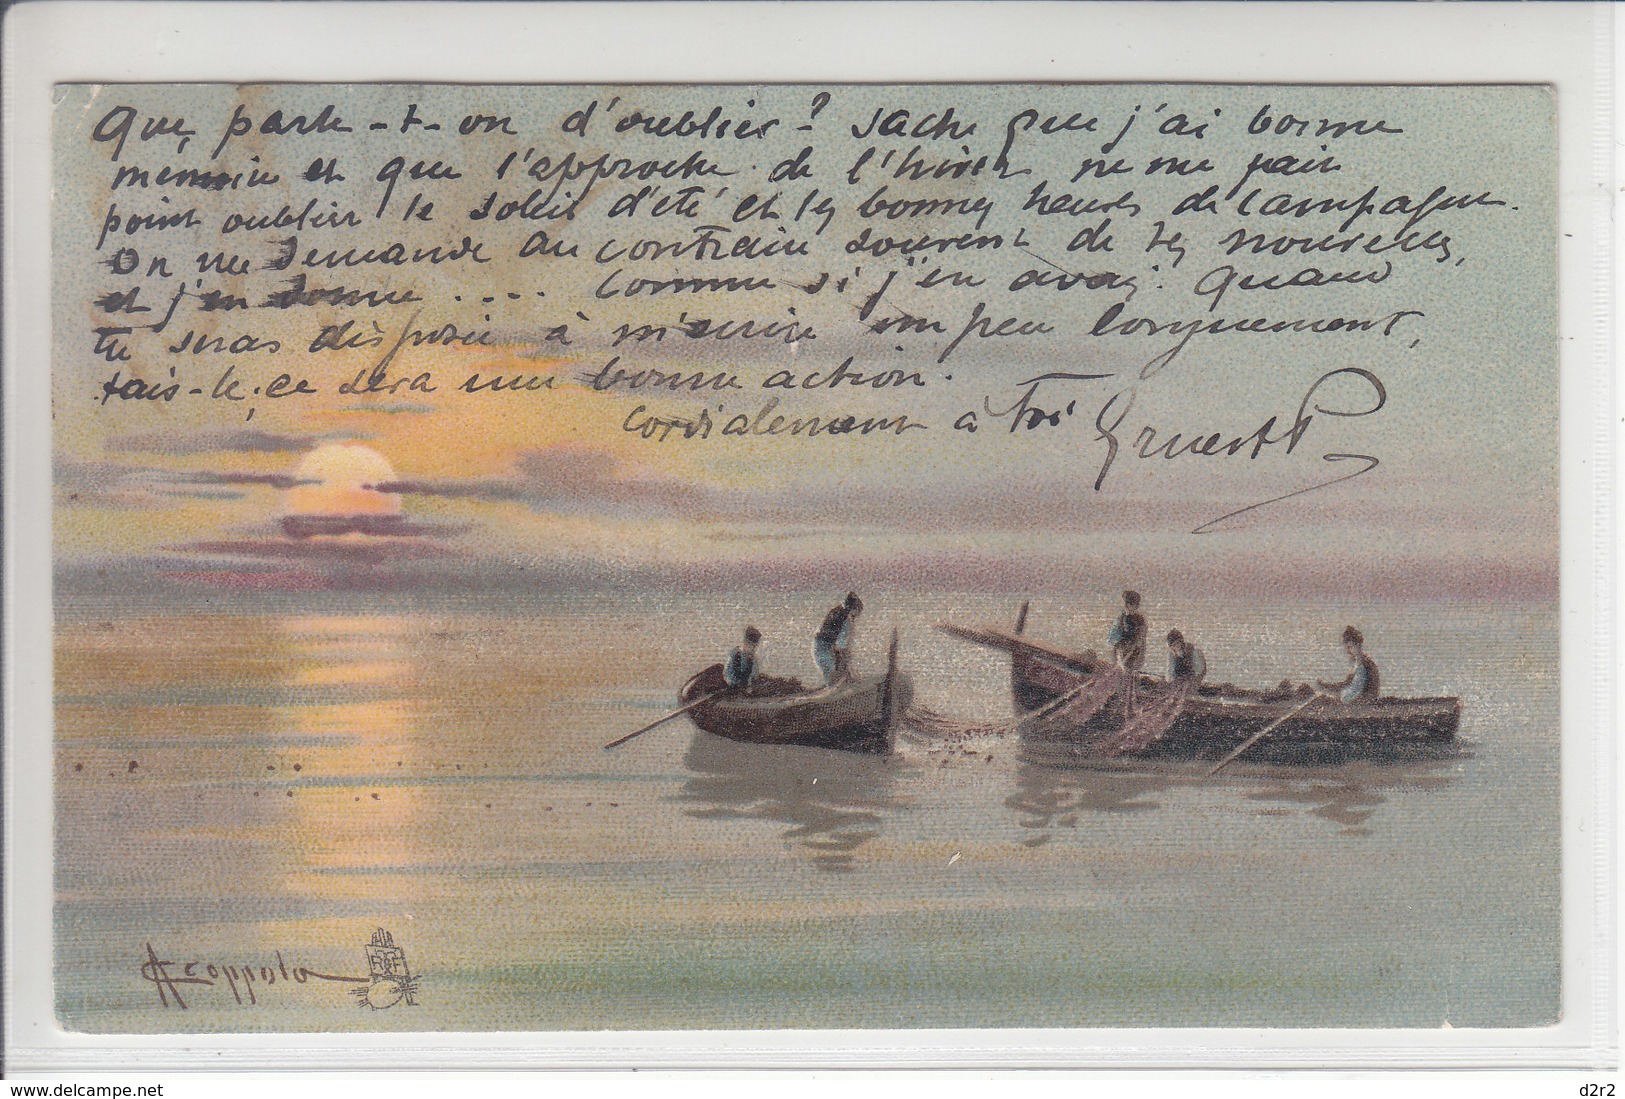 Que parle-t-on d'oublier? sache que j'ai bonne
mémoire et que l'approche de l'hiver ne me fait
point oublier le soleil d'été et les bonnes heures de campagne.
On me demande au contraire souvent de tes nouvelles,
et j'en donne .... comme si j'en avais. Quand
tu seras disposé à m'écrire un peu longuement,
fais-le, ce sera une bonne action.
Cordialement à toi Ernest P
A Coppola
www.delcampe.net
d2r2